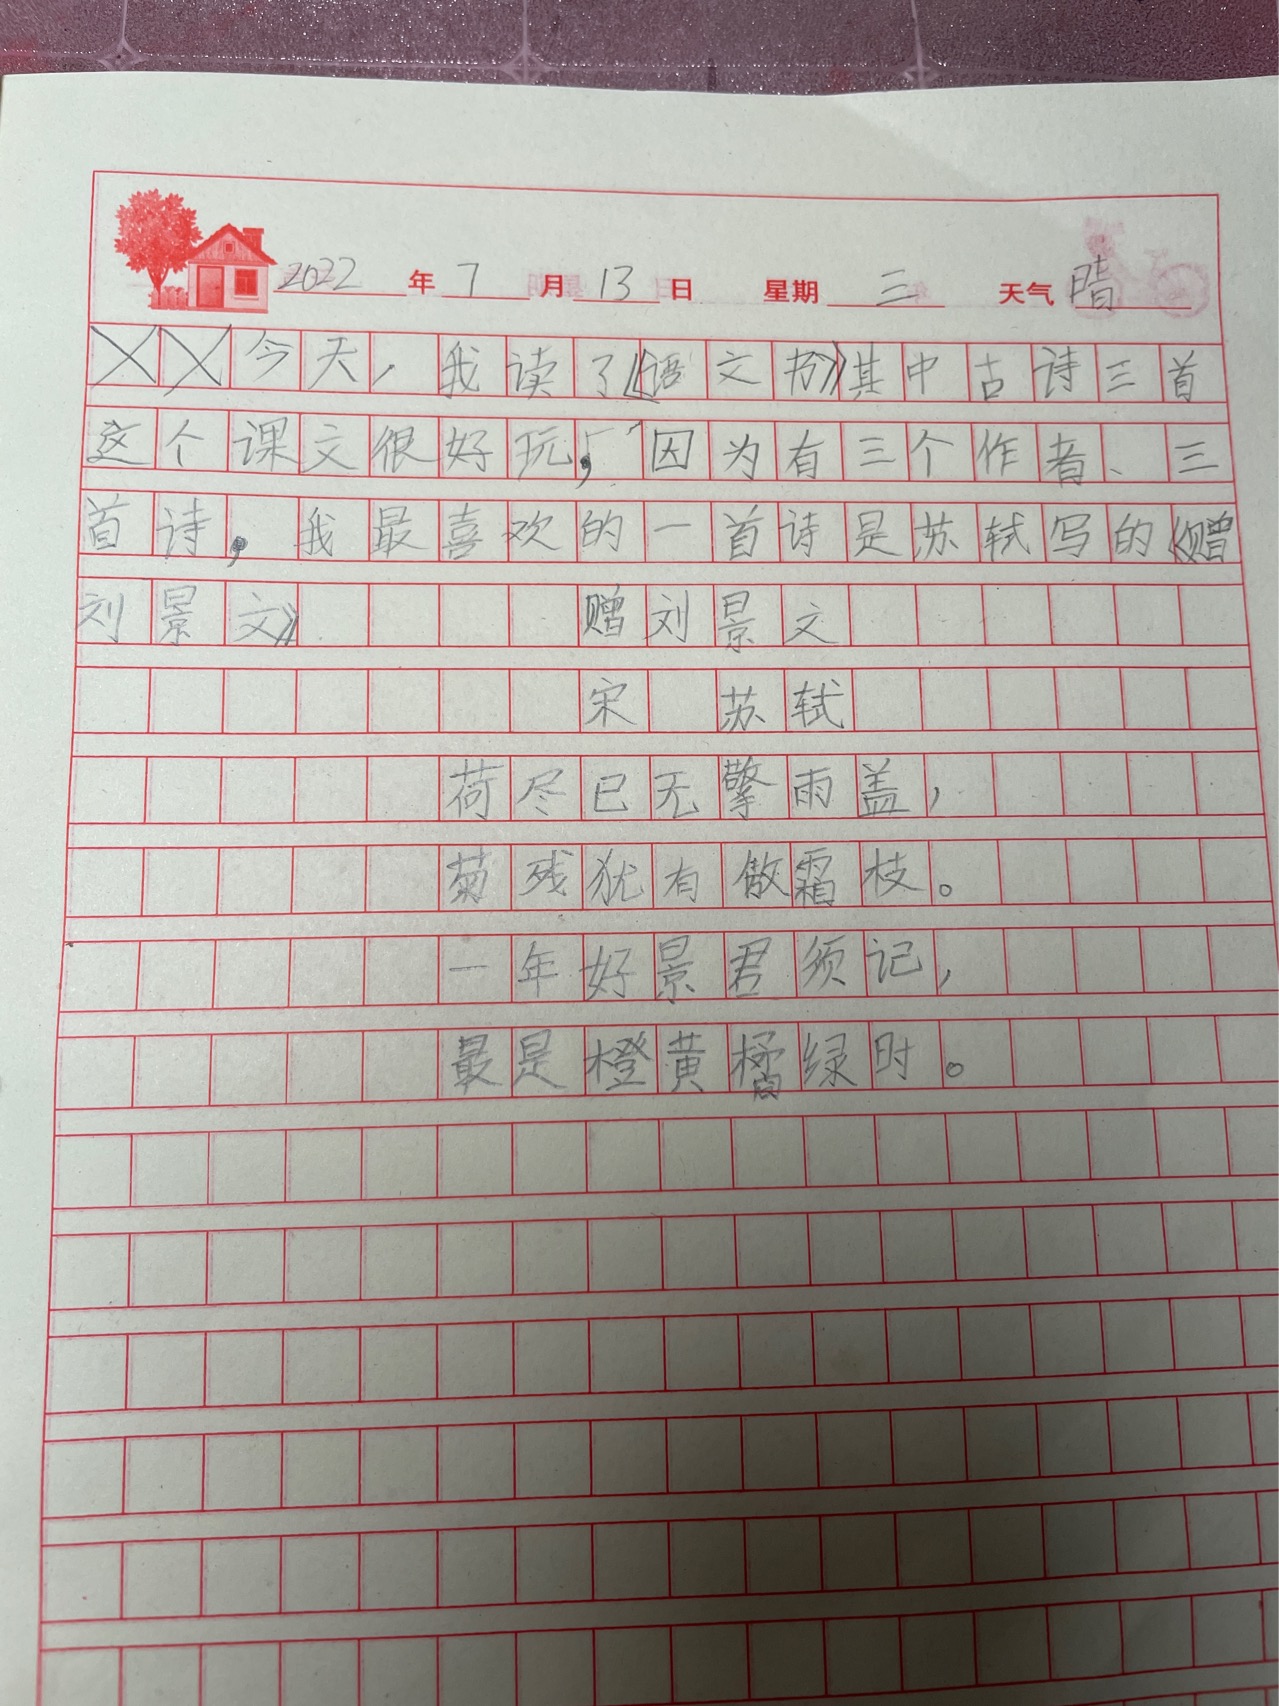 2022年7月13日 星期三 天气晴
今天，我读了《语文书》其中古诗三首
这个课文很好玩，因为有三个作者、三
首诗，我最喜欢的一首诗是苏轼写的《赠
刘景文》 赠刘景文
宋 苏轼
荷尽已无擎雨盖，
菊残犹有傲霜枝。
一年好景君须记，
最是橙黄橘绿时。